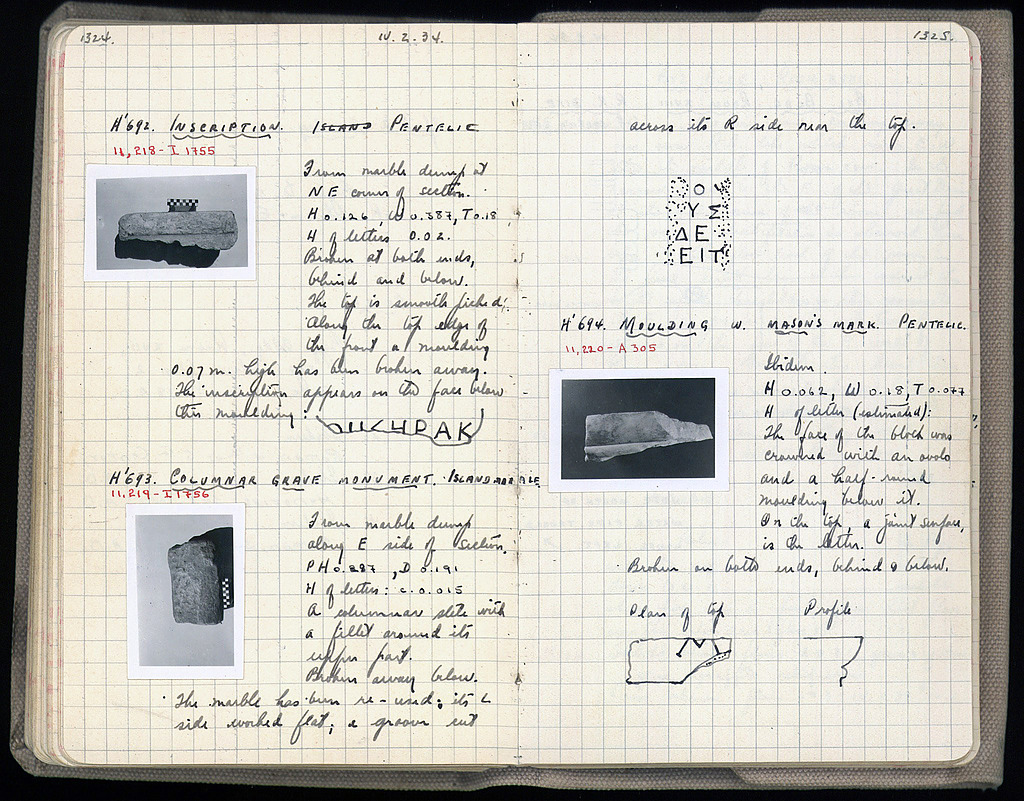 1324.
IV. 2. 34.
H'692. INSCRIPTION. ISLAND PENTELIC
11,218 - I 1755
From marble dump at
NE corner of section.
H 0.126, W 0.387, T 0.18
H of letters 0.02.
Broken at both ends,
behind and below.
The top is smooth picked.
Along the top edge of
the front a moulding
0.07 m. high has been broken away.
The inscription appears on the face below
this moulding:
ΡΑΚ
H'693. COLUMNAR GRAVE MONUMENT. ISLAND MARBLE.
11,219 - I 1756
From marble dump
along E side of section.
PH 0.287, D 0.191
H of letters: c. 0.015
A columnar stele with
a fillet around its
upper part.
Broken away below.
The marble has been re-used: its L
side worked flat; a groove cut
1325.
across its R side near the top.
Ο
ΥΣ
ΔΕ
ΕΙΤ
H'694. MOULDING W. MASON'S MARK. PENTELIC.
11,220 - A 305
Ibidem.
H 0.062, W 0.18, T 0.077
H of letter (estimated):
The face of the block was
crowned with an ovolo
and a half-round
moulding below it.
On the top, a joint surface,
is the letter.
Broken on both ends, behind & below.
Plan of top
Profile